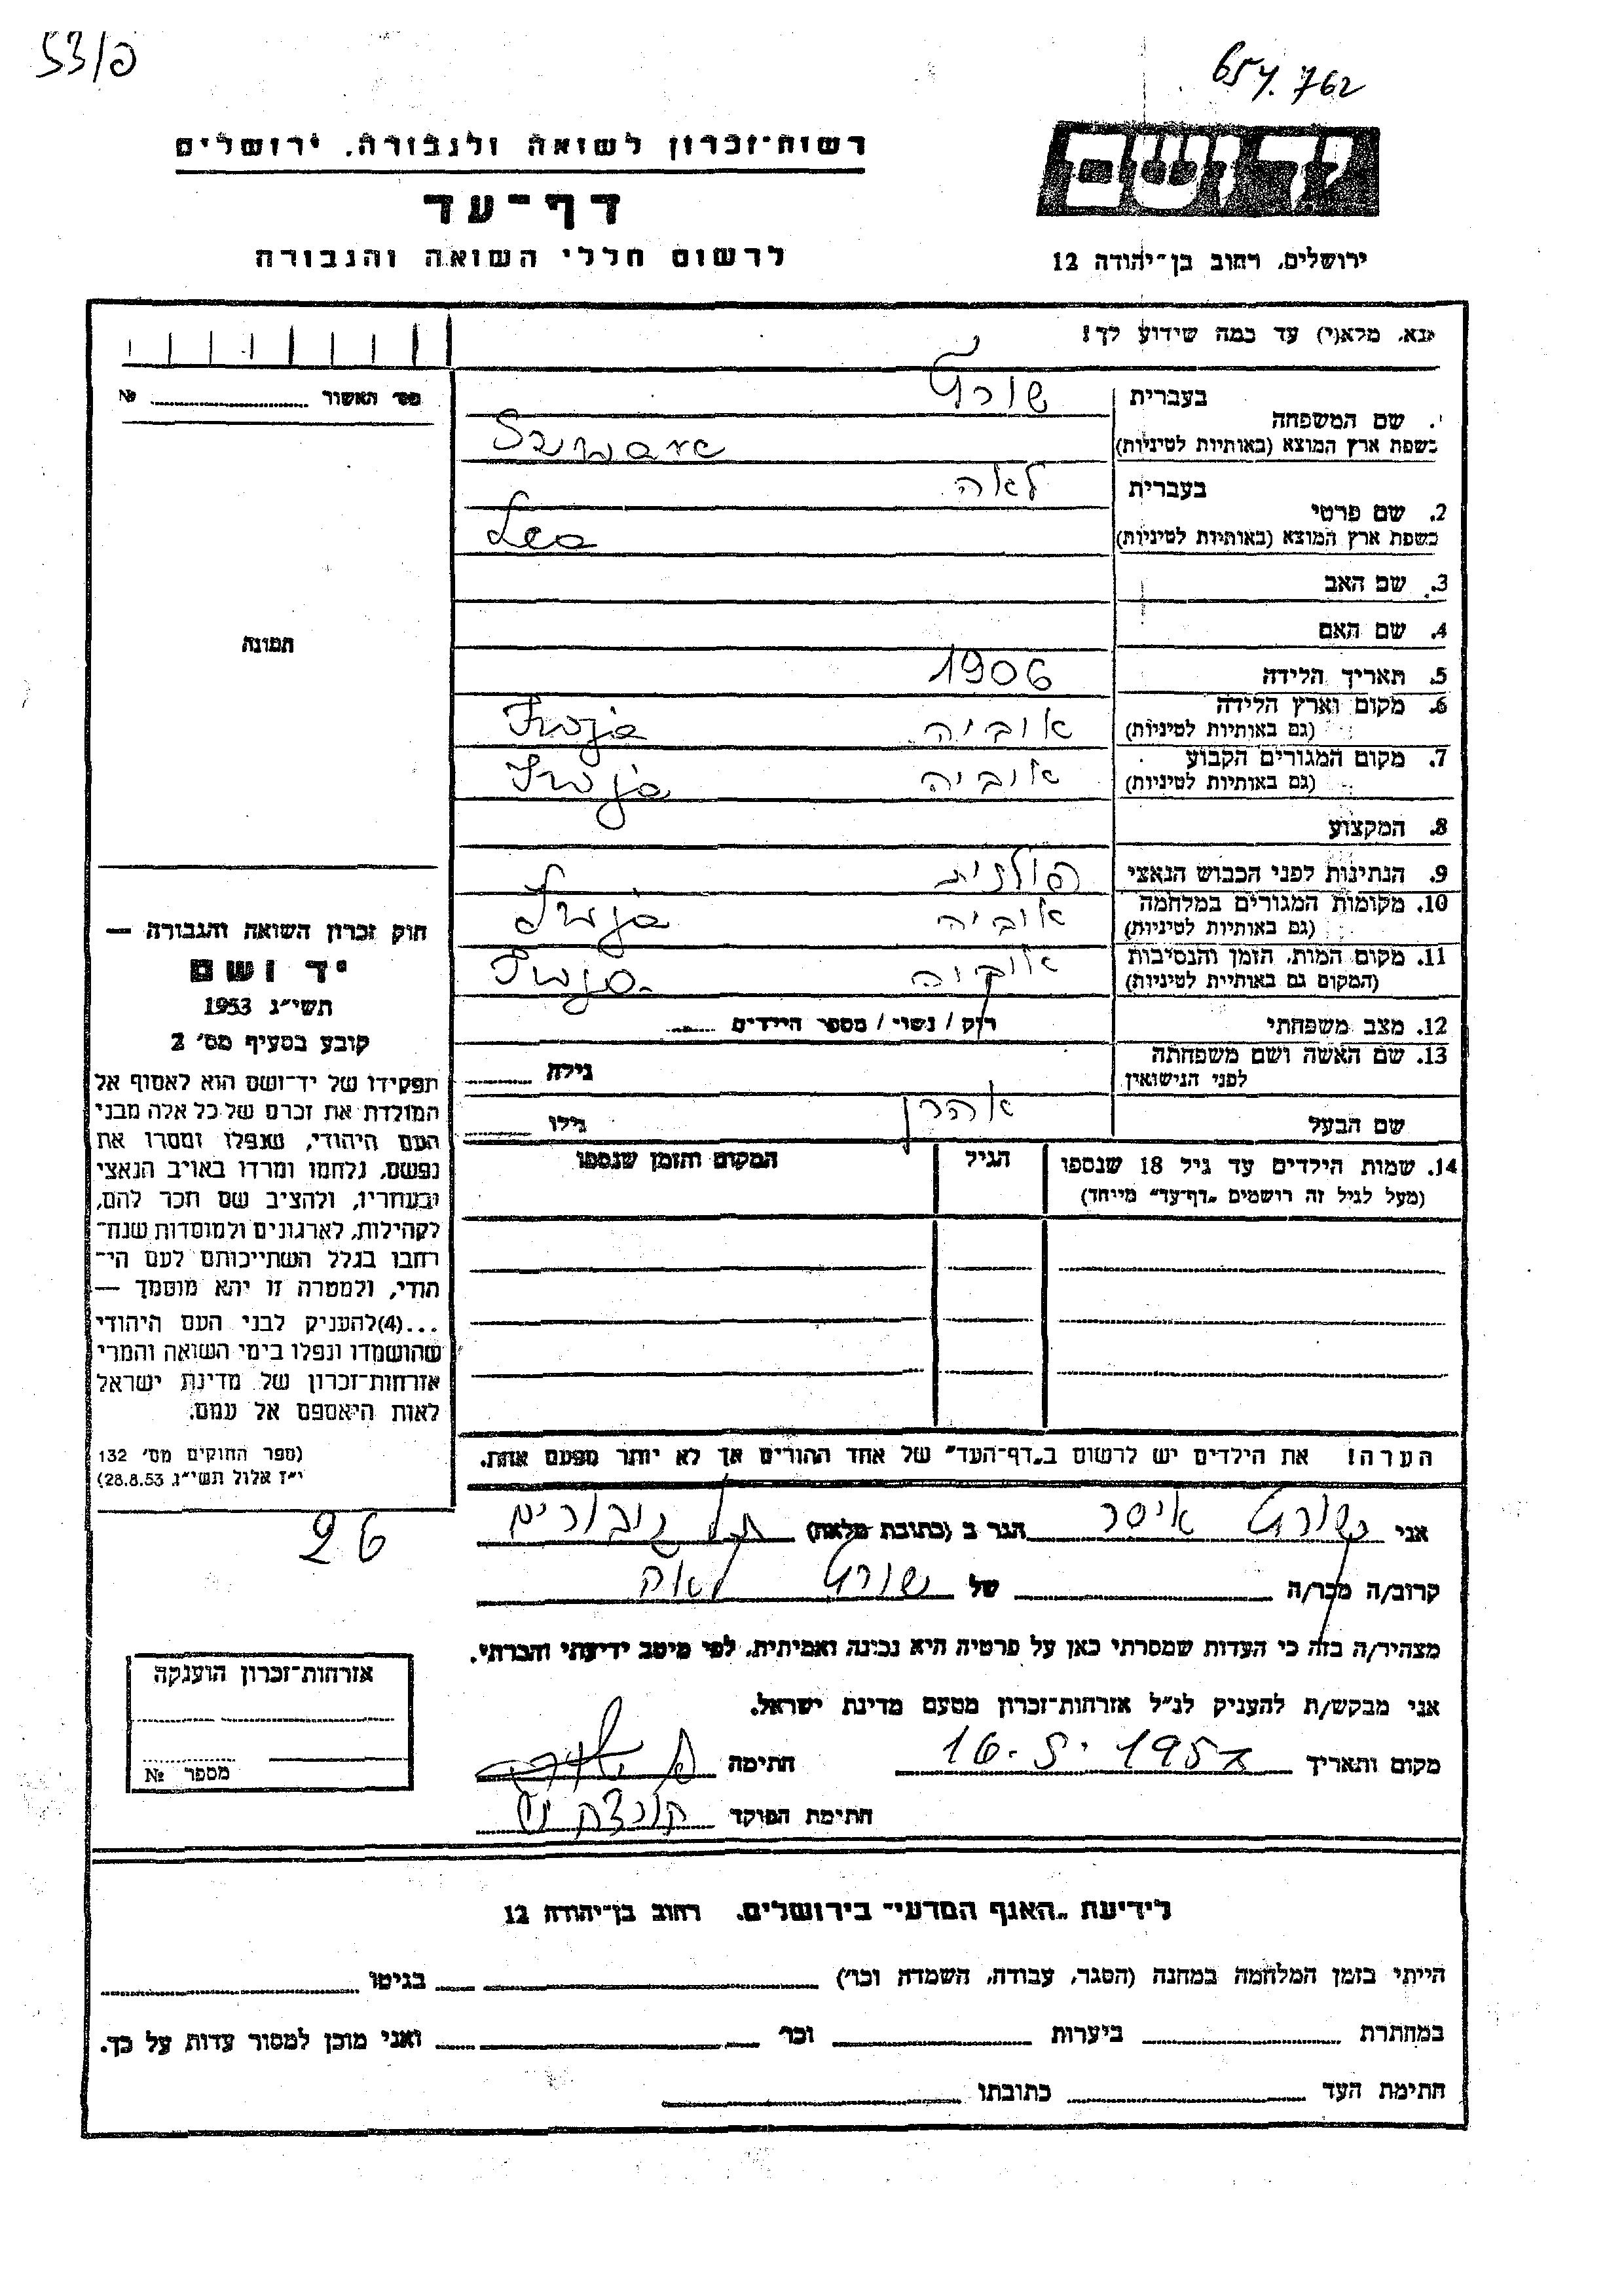 53/פ
654.762
רשות־זכרון לשואה ולגבורה. ירושלים
דף־עד
לרשום חללי השואה והגבורה
ידושם
ירושלים, רחוב בן־יהודה 12
נא, מלא(י) עד כמה שידוע לך!
מס׳ האשור ........ №
תמונה
1. שם המשפחה
בעברית
כשפת ארץ המוצא (באותיות לטיניות)
2. שם פרטי
בעברית לאה
כשפת ארץ המוצא (באותיות לטיניות) Lea
3. שם האב
4. שם האם
5. תאריך הלידה 1906
6. מקום וארץ הלידה
(גם באותיות לטיניות) אוביה
7. מקום המגורים הקבוע
(גם באותיות לטיניות) אוביה
8. המקצוע
9. הנתינות לפני הכבוש הנאצי פולנית
10. מקומות המגורים במלחמה
(גם באותיות לטיניות) אוביה
11. מקום המות, הזמן והנסיבות
(המקום גם באותיות לטיניות) אוביה
12. מצב משפחתי רוק / נשוי / מספר הילדים ......
13. שם האשה ושם משפחתה
לפני הנישואין גילה ......
שם הבעל אהרן גילו ......
14. שמות הילדים עד גיל 18 שנספו הגיל המקום והזמן שנספו
(מעל לגיל זה רושמים „דף־עד״ מייחד)
הערה! את הילדים יש לרשום ב„דף־העד״ של אחד ההורים אך לא יותר מפעם אחת.
חוק זכרון השואה והגבורה —
יד ושם
תשי״ג 1953
קובע בסעיף מס׳ 2
תפקידו של יד־ושם הוא לאסוף אל
המולדת את זכרם של כל אלה מבני
העם היהודי, שנפלו ומסרו את
נפשם, נלחמו ומרדו באויב הנאצי
ובעוזריו, ולהציב שם וזכר להם,
לקהילות, לארגונים ולמוסדות שנח־
רחבו בגלל השתייכותם לעם הי־
הודי, ולמטרה זו יהא מוסמך —
...(4)להעניק לבני העם היהודי
שהושמדו ונפלו בימי השואה והמרי
אזרחות־זכרון של מדינת ישראל
לאות היאספם אל עמם.
(ספר החוקים מס׳ 132
י״ז אלול תשי״ג 28.8.53)
26
אני איסר הגר ב (כתובת מלאה)
קרוב/ה מכר/ה של לאה
מצהיר/ה בזה כי העדות שמסרתי כאן על פרטיה היא נכונה ואמיתית, לפי מיטב ידיעתי והכרתי.
אני מבקש/ת להעניק לנ״ל אזרחות־זכרון מטעם מדינת ישראל.
מקום ותאריך חתימה
חתימת הפוקד
אזרחות־זכרון הוענקה
מספר №
לידיעת „האגף המדעי״ בירושלים. רחוב בן־יהודה 12
הייתי בזמן המלחמה במחנה (הסגר, עבודה, השמדה וכו׳) בגיטו
במחתרת ביערות וכו׳ ואני מוכן למסור עדות על כך.
חתימת העד כתובתו